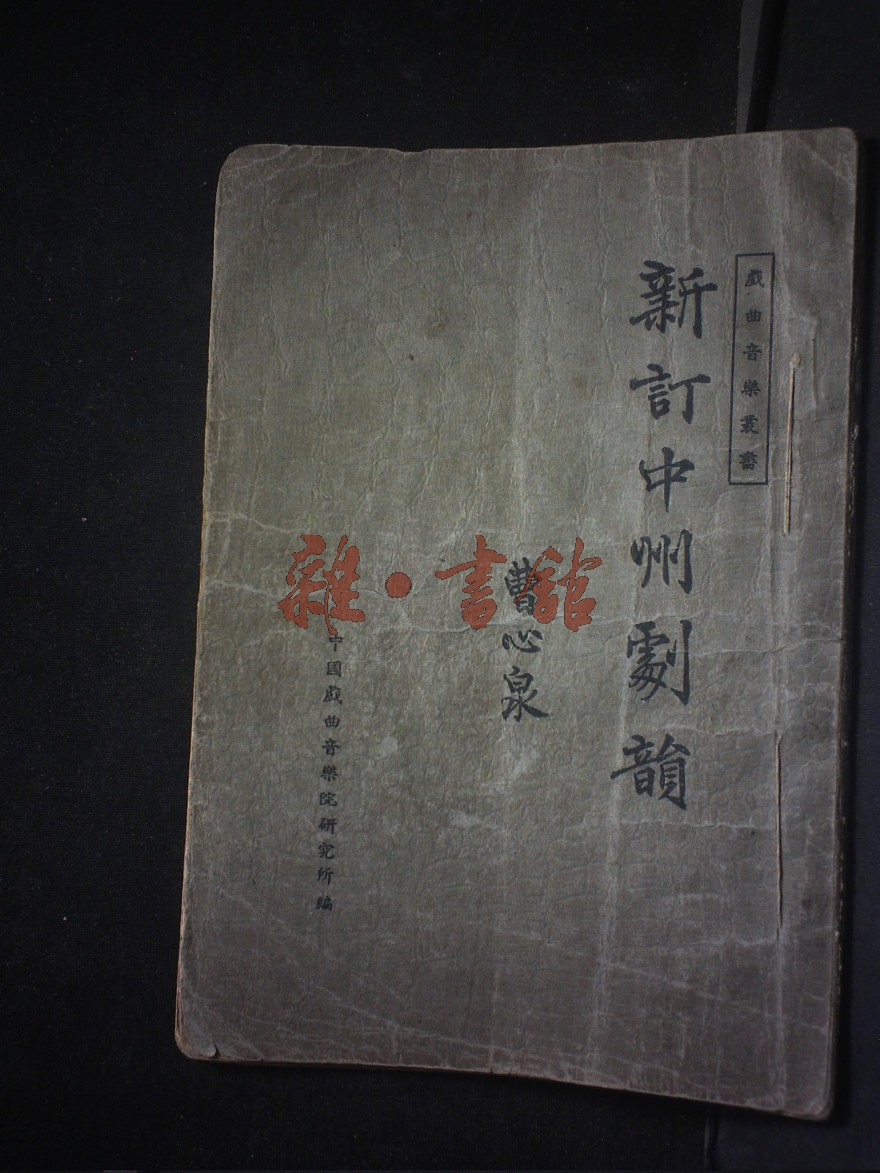 戲曲音樂叢書
新訂中州劇韻
曹心泉
中國戲曲音樂院研究所編
雜·書館